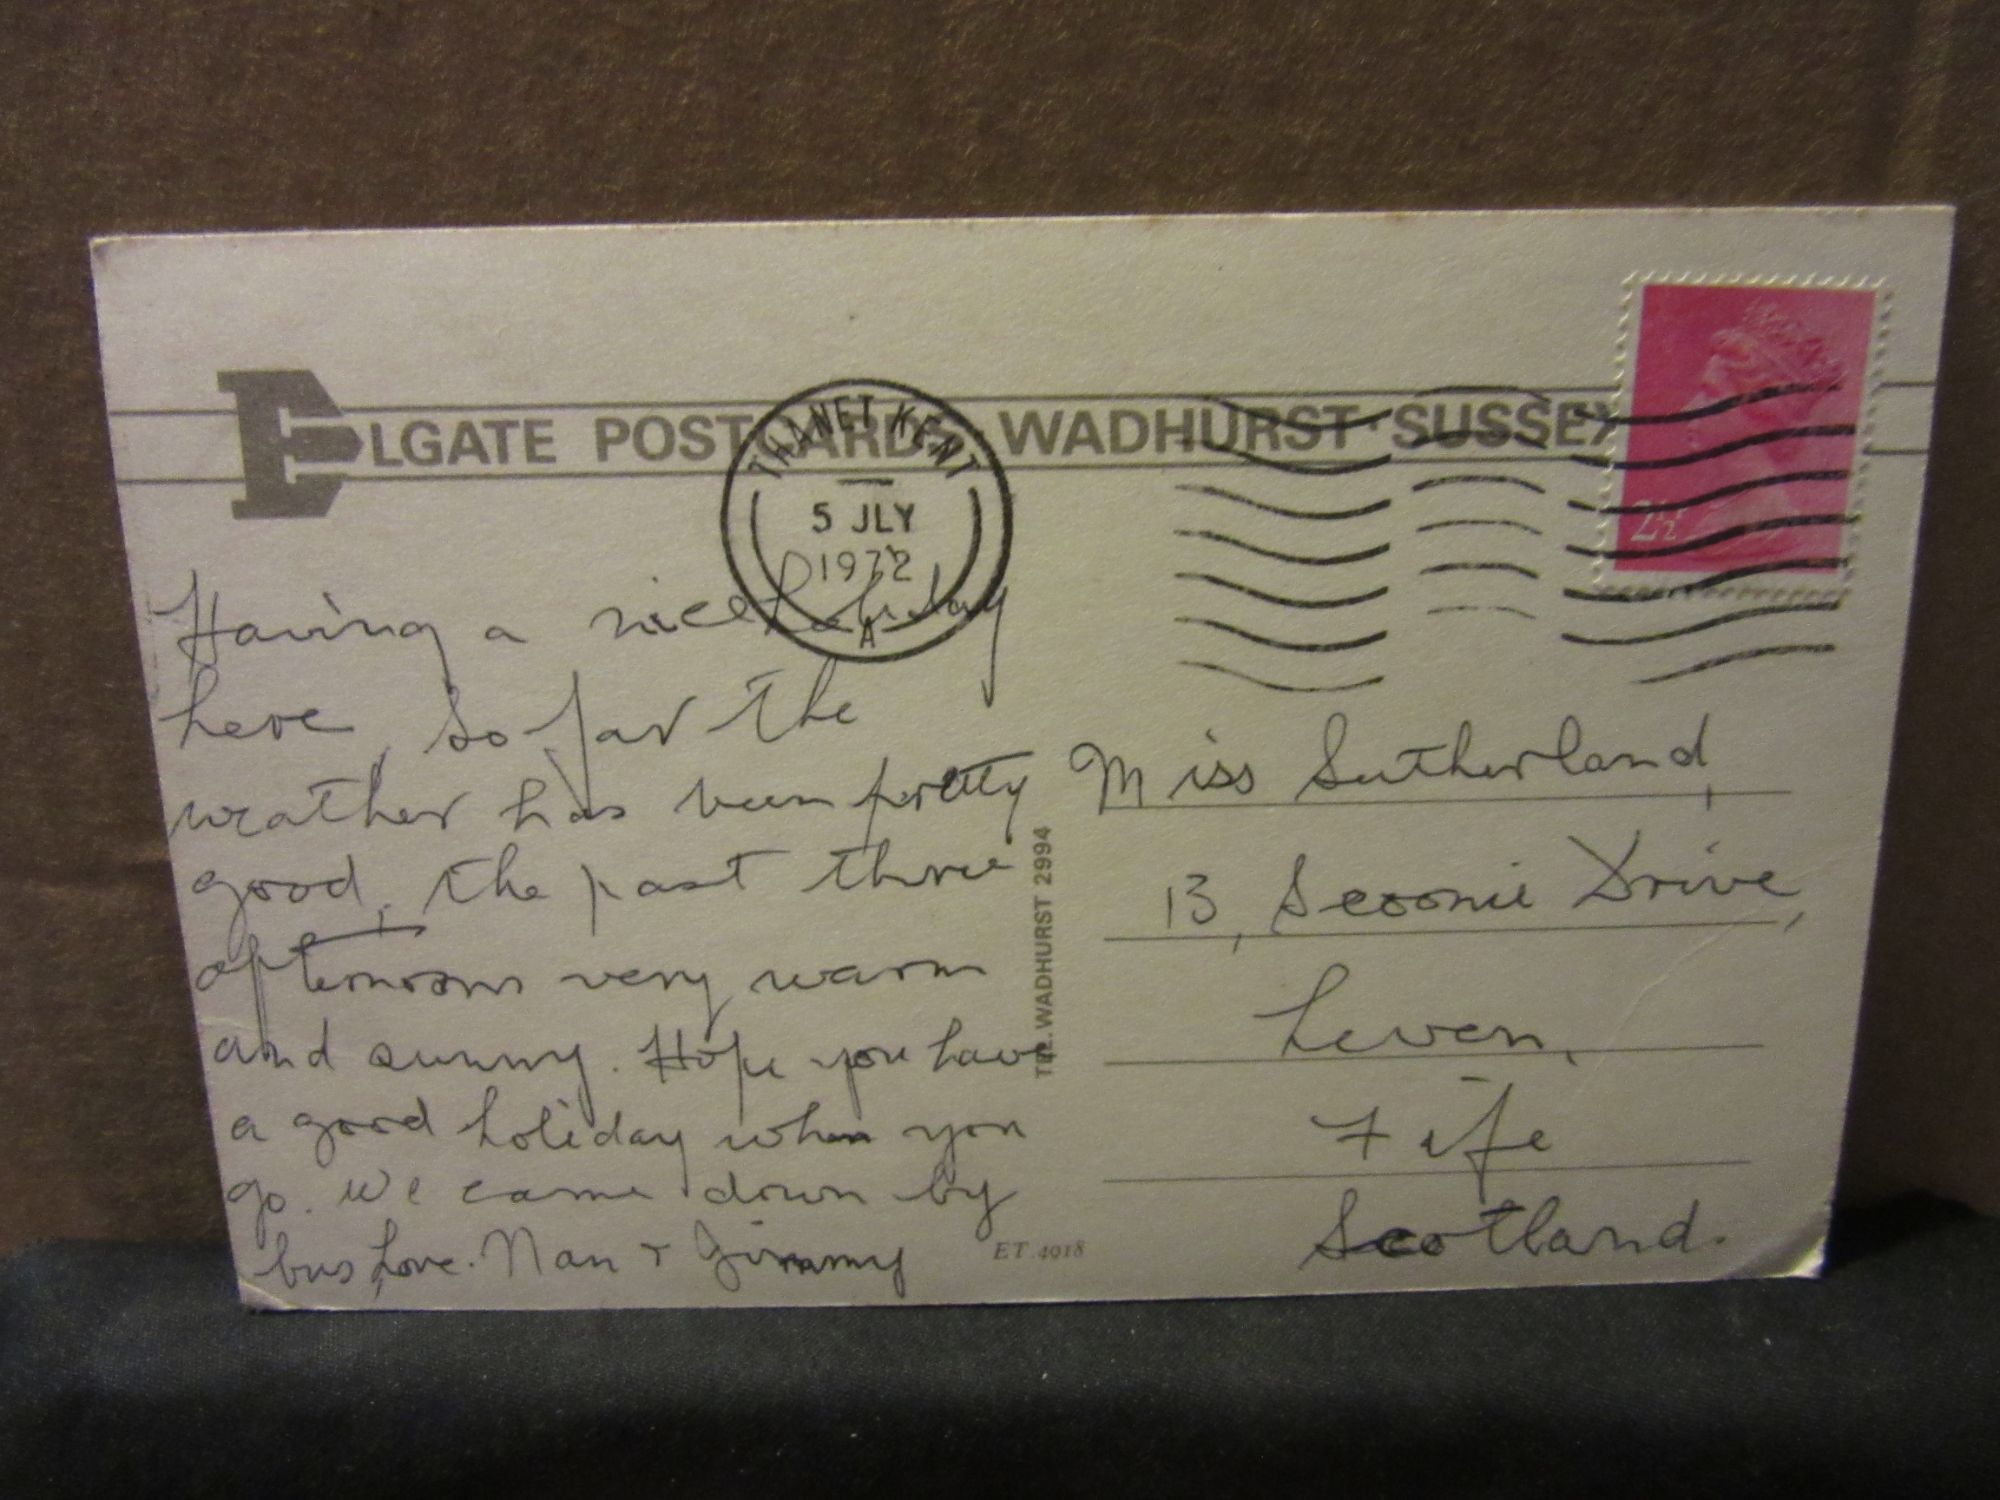 ELGATE POSTCARDS · WADHURST · SUSSEX
THANET KENT
5 JLY
1972
A
2½P
Having a nice holiday
here, so far the
weather has been pretty
good, the past three
afternoons very warm
and sunny. Hope you have
a good holiday when you
go. We came down by
bus, Love. Nan + Jimmy
TEL. WADHURST 2994
ET.4918
Miss Sutherland,
13, Scoonie Drive,
Leven,
Fife
Scotland.